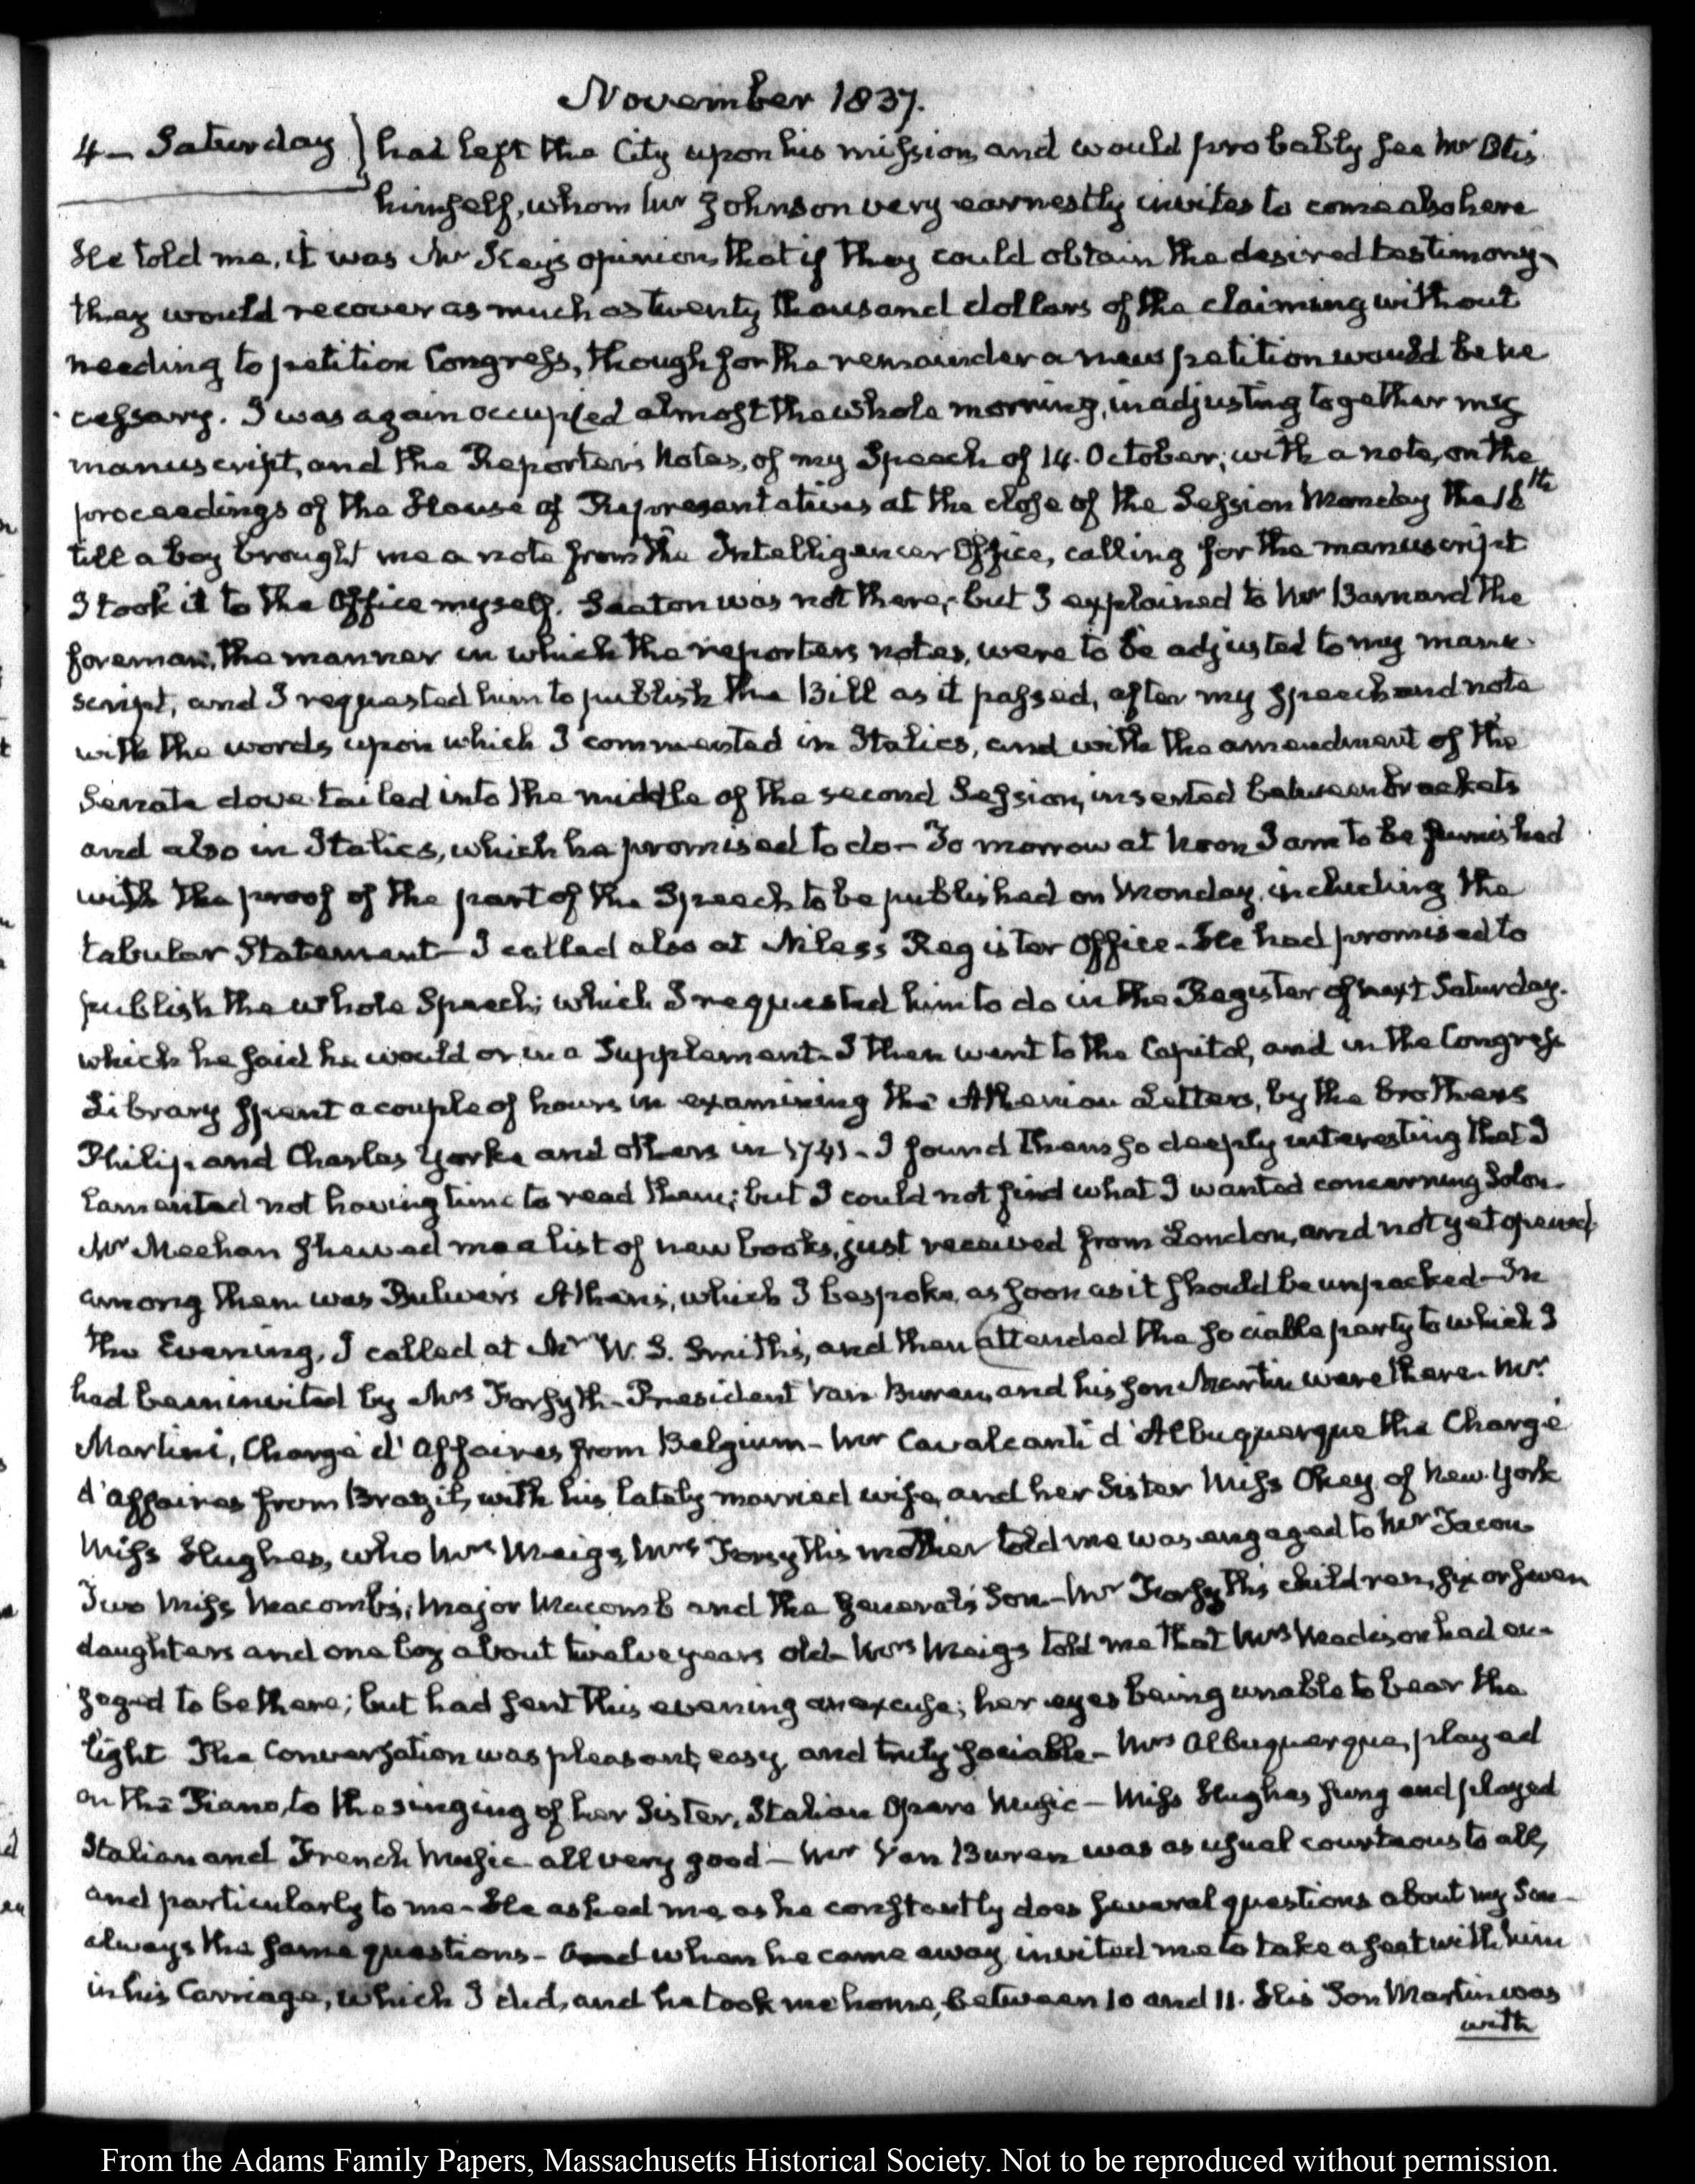 November 1837.
4 — Saturday } had left the City upon his mission, and would probably see Mr Otis
himself, whom Mr Johnson very earnestly invites to come also here
He told me, it was Mr Key's opinion, that if they could obtain the desired testimony,
they would recover as much as twenty thousand dollars of the claiming without
needing to petition Congress, though for the remainder a new petition would be ne
cessary. I was again occupied almost the whole morning, in adjusting together my
manuscript, and the Reporter's Notes, of my Speech of 14. October; with a note, on the
proceedings of the House of Representatives at the close of the Session Monday the 16th
till a boy brought me a note from the Intelligencer Office, calling for the manuscript
I took it to the Office myself. Seaton was not there, but I explained to Mr Barnard the
foreman, the manner in which the reporters notes, were to be adjusted to my manu-
script, and I requested him to publish the Bill as it passed, after my speech and note
with the words upon which I commented in Italics, and with the amendment of the
Senate dove tailed into the middle of the second Session, inserted between brackets
and also in Italics, which he promised to do — To morrow at Noon I am to be furnished
with the proof of the part of the Speech to be published on Monday, including the
tabular Statement — I called also at Niles's Register Office — He had promised to
publish the whole Speech; which I requested him to do in the Register of next Saturday.
which he said he would or in a Supplement — I then went to the Capitol, and in the Congress
Library spent a couple of hours in examining the Athenian Letters, by the brothers
Philip and Charles Yorke and others in 1741 — I found them so deeply interesting that I
lamented not having time to read them; but I could not find what I wanted concerning Solon.
Mr Meehan shewed me a list of new books, just received from London, and not yet opened,
among them was Bulwer's Athens, which I bespoke, as soon as it should be unpacked — In
the Evening, I called at Mr W. S. Smith's, and then attended the sociable party to which I
had been invited by Mrs Forsyth — President Van Buren, and his son Martin were there — Mr
Martini, Chargé d'Affaires from Belgium — Mr Cavalcanti d'Albuquerque the Chargé
d'affaires from Brazil, with his lately married wife, and her Sister Miss Okey of New York
Miss Hughes, who Mrs Meigs, Mrs Forsyth's mother told me was engaged to Mr Tacon
Two Miss Macomb's, Major Macomb and the General's Son — Mr Forsyth's children, six or seven
daughters and one boy about twelve years old — Mrs Meigs told me that Mrs Madison had en-
gaged to be there; but had sent this evening an excuse; her eyes being unable to bear the
light The Conversation was pleasant, easy, and truly sociable — Mrs Albuquerque, played
on the Piano, to the singing of her Sister, Italian Opera Music — Miss Hughes sung and played
Italian and French Music all very good — Mr Van Buren was as usual courteous to all,
and particularly to me — He asked me, as he constantly does several questions about my Son —
always the same questions — And when he came away, invited me to take a seat with him
in his Carriage, which I did, and he took me home, between 10 and 11. His Son Martin was
with
From the Adams Family Papers, Massachusetts Historical Society. Not to be reproduced without permission.